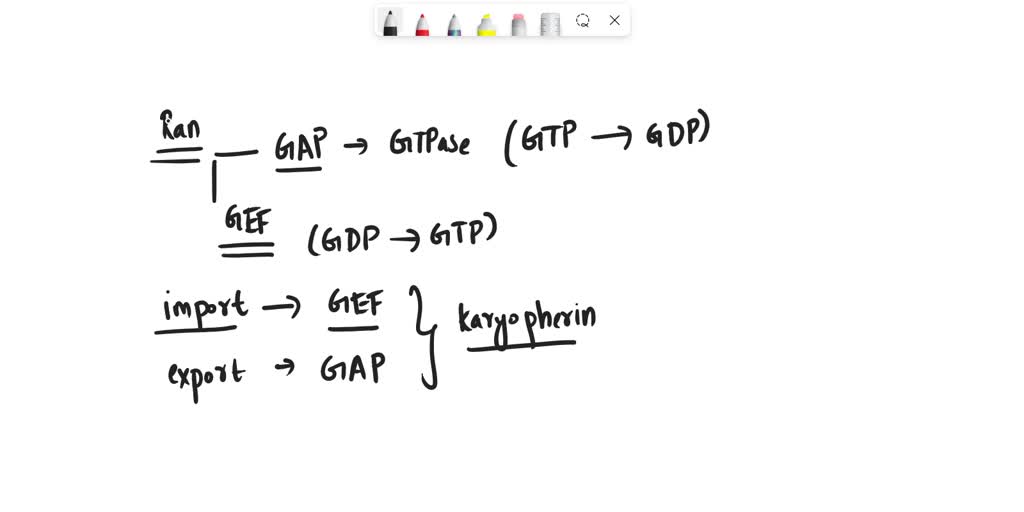 Ran
GAP → GTPase (GTP → GDP)
GEF (GDP → GTP)
import → GEF
karyopherin
export → GAP